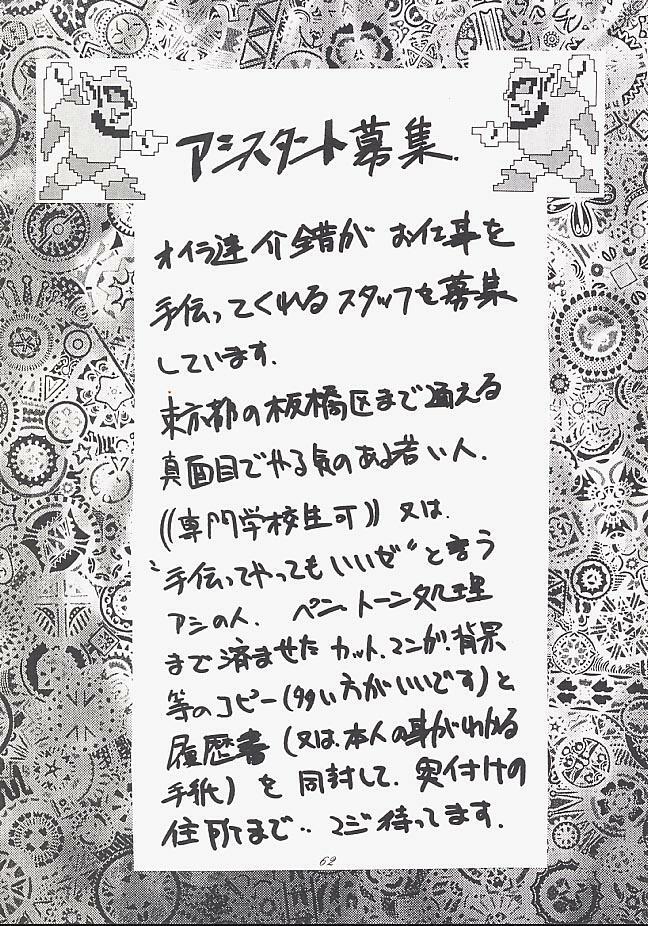 アシスタント募集.
オイラ達 介錯が お仕事を
手伝ってくれる スタッフを募集
しています.
東京都の板橋区まで通える
真面目でやる気のある若い人.
((専門学校生可)) 又は.
"手伝ってやってもいいぜ" と言う
アシの人. ペン、トーン処理
まで済ませた カット、マンガ、背景
等のコピー (多い方がいいです) と
履歴書 (又は、本人の事がわかる
手紙) を 同封して. 奥付けの
住所まで‥ マジ待ってます.
62